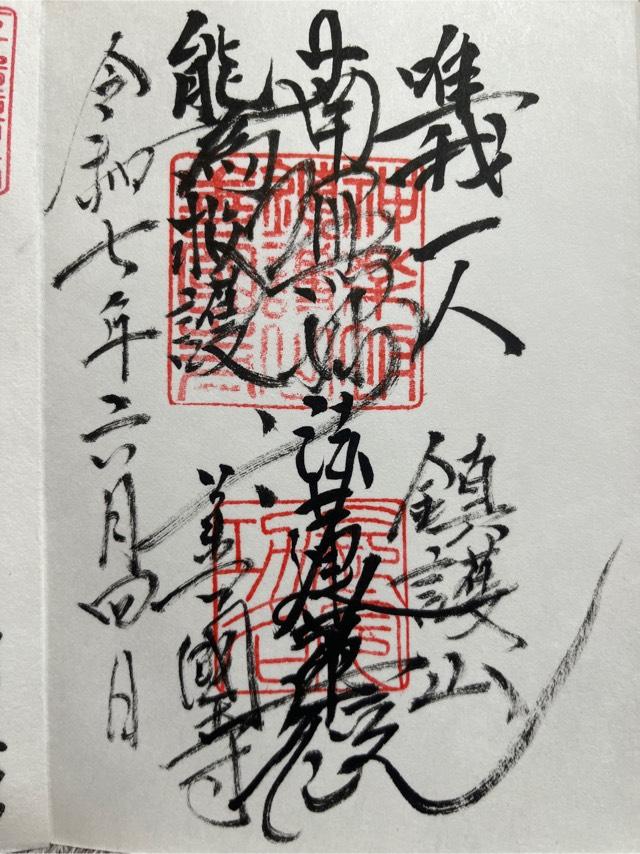 唯我一人
鎮護山
南無妙法蓮華経
能為救護
善國寺
令和七年六月四日